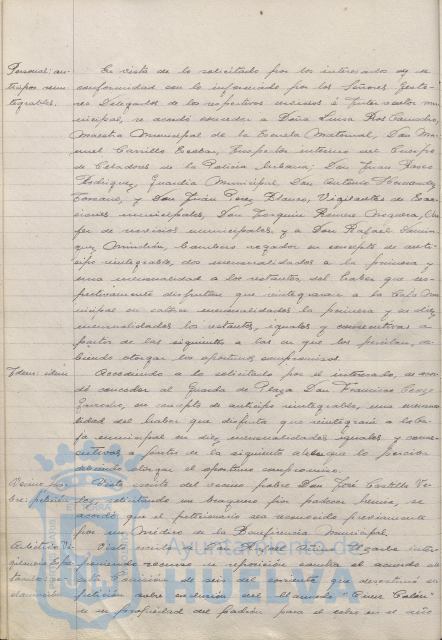 Personal: an-
ticipos rein-
tegrables.
En vista de lo solicitado por los interesados y de
conformidad con lo informado por los Señores Gesto-
res Delegados de los respectivos servicios é Interventor mu-
nicipal, se acordó conceder a Doña Luisa Ros
Maestra Municipal de la Escuela Maternal, Don Ma-
nuel Carrillo Escobar, Inspector interino del Cuerpo
de Celadores de la Policía Urbana; Don Juan Ponce
Rodríguez, Guardia Municipal, Don Antonio Hernandez
y Don Juan Perez Blanco, Vigilantes de Exac-
ciones municipales, Don Joaquin Romero Mogena, Cho-
fer de servicios municipales, y a Don Rafael Domin-
guez Cambero regador en concepto de anti-
cipo reintegrable, dos mensualidades a la primera y
una mensualidad a los restantes, del haber que res-
pectivamente disfrutan que reintegraran a la Caja Mu-
nicipal en catorce mensualidades la primera y en diez
mensualidades los restantes, iguales y consecutivas a
partir de las siguientes a las en que los perciban, de-
biendo otorgar los oportunos compromisos.
Idem: idem
Accediendo a lo solicitado por el interesado, se acor-
dó conceder al Guarda de Plaza Don Francisco
en concepto de anticipo reintegrable, una mensua-
lidad del haber que disfruta que reintegrará a la Ca-
ja municipal en diez mensualidades iguales y conse-
cutivas a partir de la siguiente a la en que lo perciba
debiendo otorgar el oportuno compromiso.
Vecino po-
bre: petición
Visto escrito del vecino pobre Don José Castilla Ve-
solicitando un braguero por padecer hernia, se
acordó que el peticionario sea reconocido previamente
por un Médico de la Beneficencia Municipal.
Arbitrio
Visto escrito de Don Miguel Ugarte inter-
poniendo recurso de reposición contra el acuerdo de
esta Comisión de seis del corriente que desestimó su
petición sobre exclusión del llamado "Cine Colón"
de su propiedad del Padrón para el cobro en el año
Ayuntamiento de
HUELVA